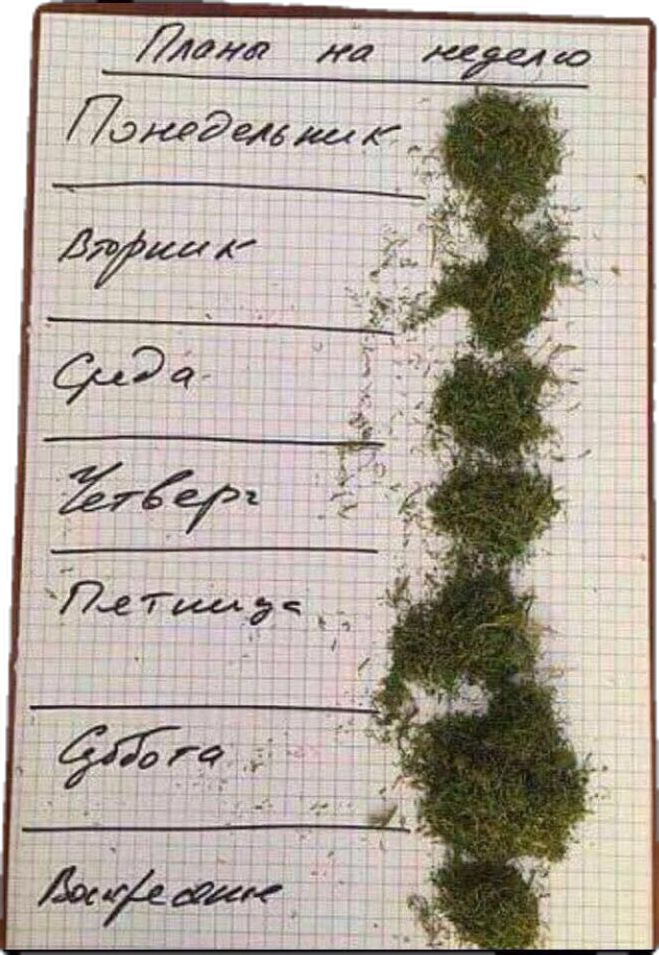 Планы на неделю
Понедельник
Вторник
Среда
Четверг
Пятница
Суббота
Воскресение